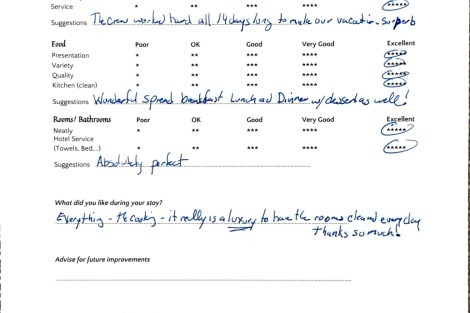 Service * ** *** **** *****
Suggestions The crew worked hard all 14 days long to make our vacation superb
Food Poor OK Good Very Good Excellent
Presentation * ** *** **** *****
Variety * ** *** **** *****
Quality * ** *** **** *****
Kitchen (clean) * ** *** **** *****
Suggestions Wonderful spread breakfast Lunch and Dinner w/ dessert as well!
Rooms/ Bathrooms Poor OK Good Very Good Excellent
Neatly * ** *** **** *****
Hotel Service
(Towels, Bed,...) * ** *** **** *****
Suggestions Absolutely perfect
What did you like during your stay?
Everything - the cooking - it really is a luxury to have the rooms cleaned everyday
thanks so much!
Advise for future improvements